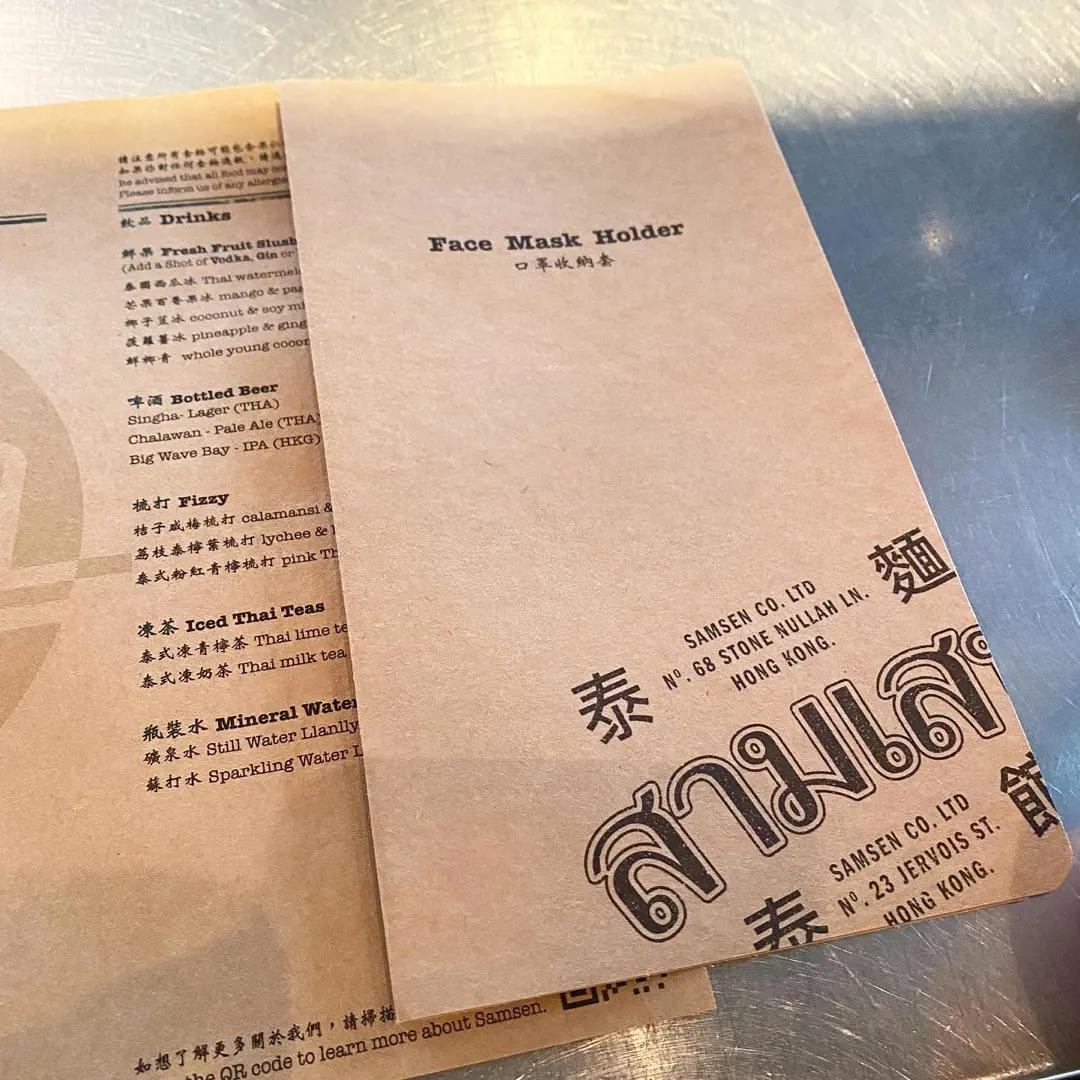 請注意所有食物可能包含
如果你對任何食物過敏，請
Be advised that all food may
Please inform us of any
飲品 Drinks
鮮果 Fresh Fruit Slush
(Add a Shot of Vodka, Gin or
泰國西瓜冰 Thai
芒果百香果冰 mango &
椰子荳冰 coconut & soy
菠蘿薑冰 pineapple &
鮮椰青 whole young
啤酒 Bottled Beer
Singha- Lager (THA)
Chalawan - Pale Ale (THA)
Big Wave Bay - IPA (HKG)
梳打 Fizzy
桔子咸梅梳打 calamansi &
荔枝泰檸葉梳打 lychee &
泰式粉紅青檸梳打 pink
凍茶 Iced Thai Teas
泰式凍青檸茶 Thai lime
泰式凍奶茶 Thai milk tea
瓶裝水 Mineral Water
礦泉水 Still Water Llanlly
蘇打水 Sparkling Water
如想了解更多關於我們，請掃描
the QR code to learn more about Samsen.
Face Mask Holder
口罩收納套
泰
SAMSEN CO. LTD
Nº. 68 STONE NULLAH LN.
HONG KONG.
麵
สามเส
泰
SAMSEN CO. LTD
Nº. 23 JERVOIS ST.
HONG KONG.
館